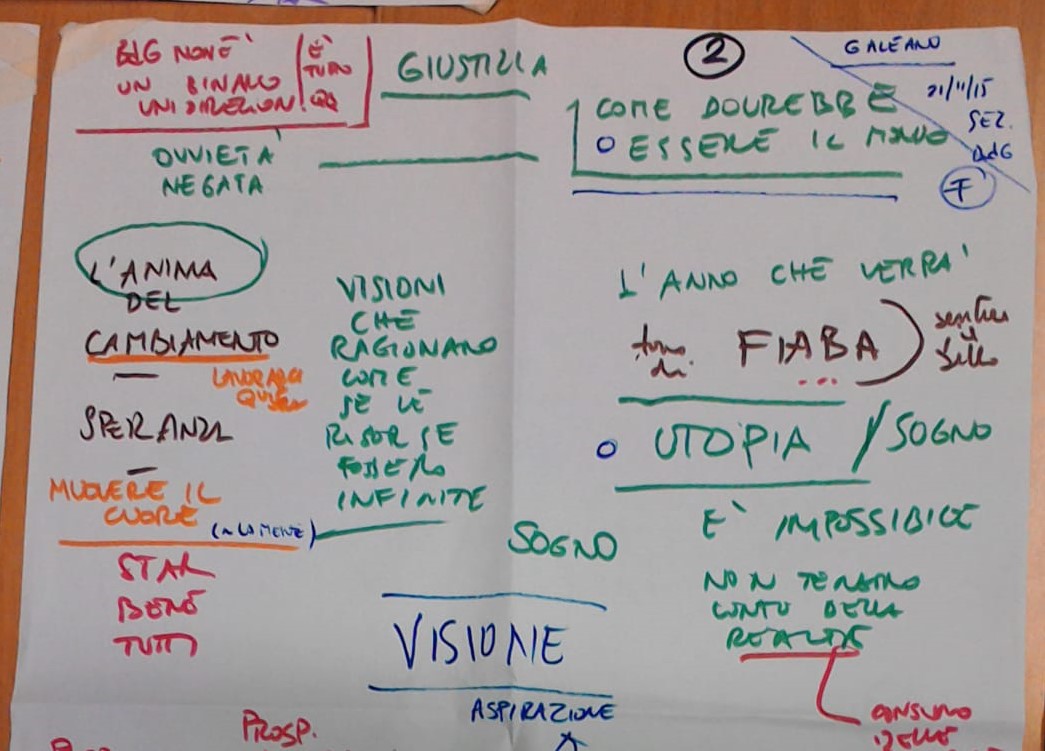 BdG NON È
UN BINARIO
UNIDIREZION.
È
TUTTO
QQ
GIUSTIZIA
2
GALEANO
21/11/15
SEZ.
BdG
F
COME DOVREBBE
ESSERE IL MONDO
OVVIETÀ
NEGATA
L'ANIMA
DEL
CAMBIAMENTO
LAVORARCI
SPERANZA
MUOVERE IL
CUORE
(E LA MENTE)
STAR
BENE
TUTTI
VISIONI
CHE
RAGIONANO
COME
SE LE
RISORSE
FOSSERO
INFINITE
L'ANNO CHE VERRÀ
tono
di
FIABA
...
UTOPIA / SOGNO
È IMPOSSIBILE
NON TENIAMO
CONTO DELLA
REALTÀ
SOGNO
VISIONE
ASPIRAZIONE
PROSP.
CONSUMO
DELLE